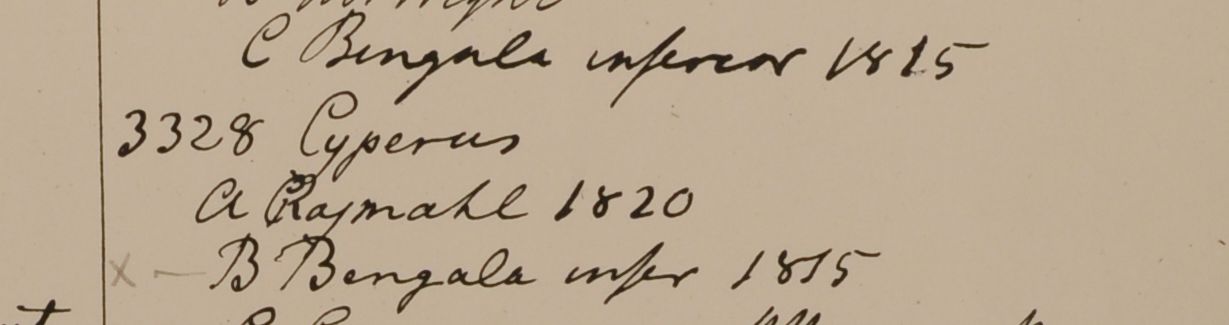 C Bengala inferior 1815
3328 Cyperus
A Rajmahl 1820
x — B Bengala infer 1815